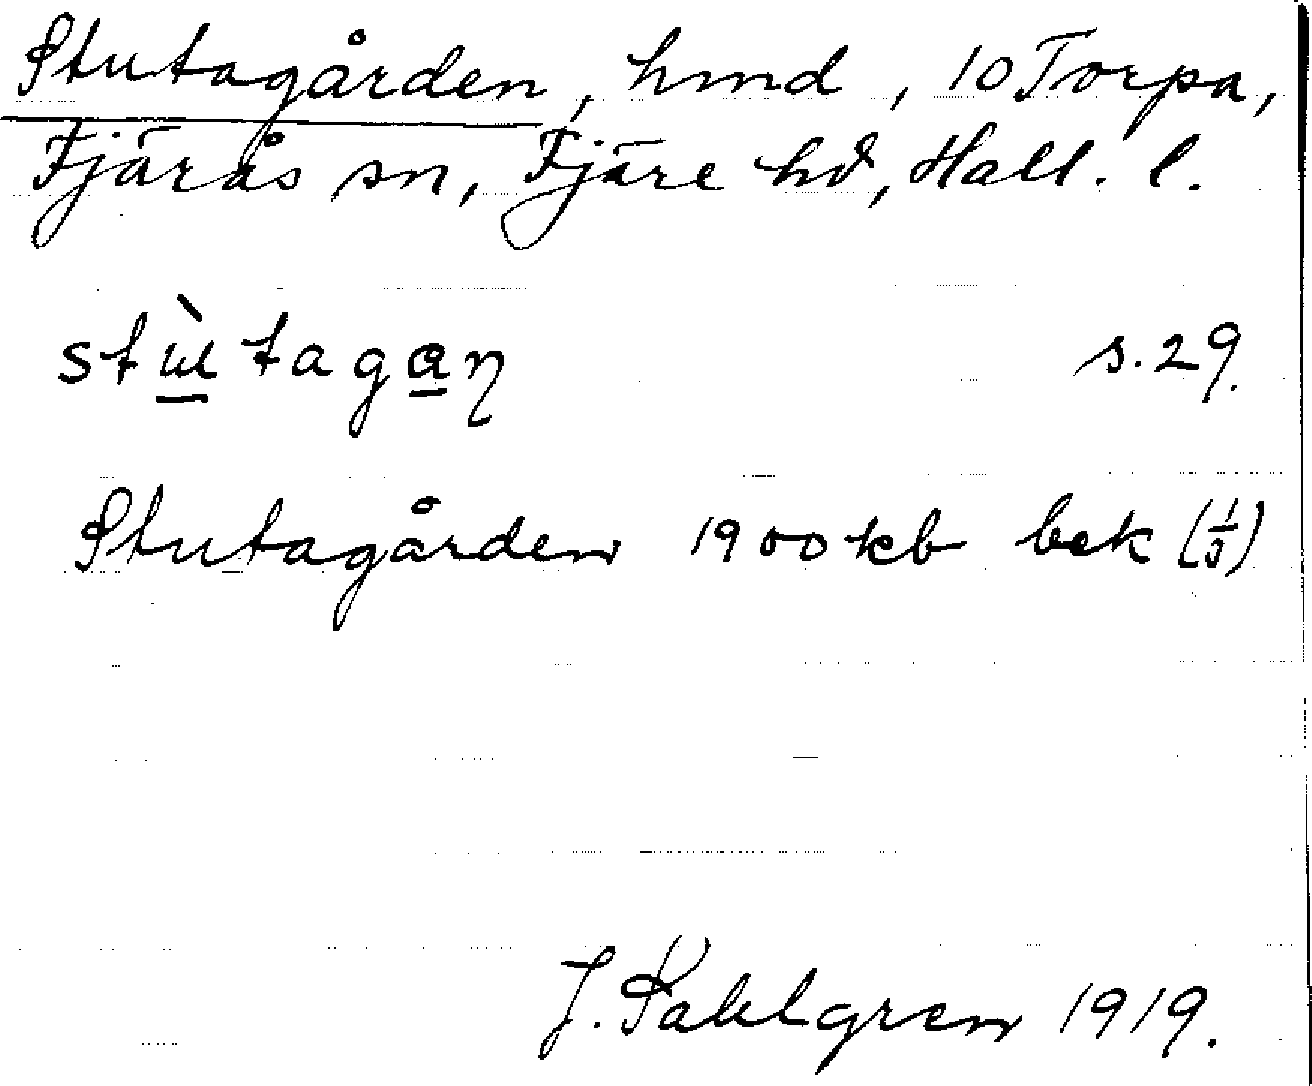 Stutagården, hmd, 10 Torpa,
Fjärås sn, Fjäre hd, Hall. l.
stùtagan s.29.
Stutagården 1900 kb bek (1/5)
J. Sahlgren 1919.